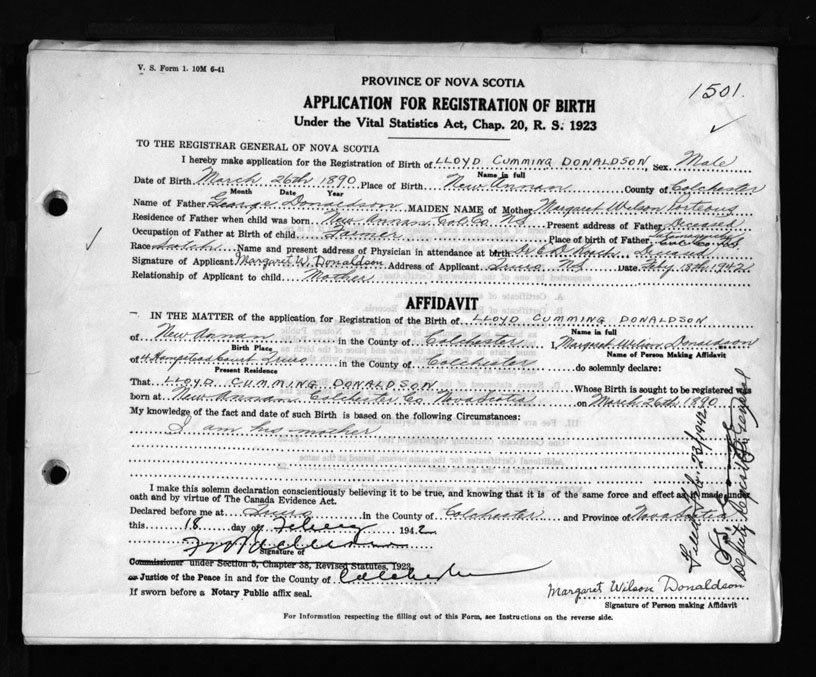 V. S. Form 1. 10M 6-41
1501.
PROVINCE OF NOVA SCOTIA
APPLICATION FOR REGISTRATION OF BIRTH
Under the Vital Statistics Act, Chap. 20, R. S. 1923
TO THE REGISTRAR GENERAL OF NOVA SCOTIA
I hereby make application for the Registration of Birth of LLOYD CUMMING DONALDSON, Sex Male
Name in full
Date of Birth March 26th 1890 Place of Birth New Annan County of Colchester
Month Date Year
Name of Father George Donaldson MAIDEN NAME of Mother Margaret Wilson Porteous
Residence of Father when child was born New Annan Col. Co. NS Present address of Father Deceased
Occupation of Father at Birth of child Farmer Place of birth of Father Col. Co. NS
Race Scotch Name and present address of Physician in attendance at birth Dr Deceased
Signature of Applicant Margaret W. Donaldson Address of Applicant Truro NS Date Feby 18th 1942
Relationship of Applicant to child Mother
AFFIDAVIT
IN THE MATTER of the application for Registration of the Birth of LLOYD CUMMING DONALDSON
Name in full
of New Annan in the County of Colchester I, Margaret Wilson Donaldson
Birth Place Name of Person Making Affidavit
of Hampstead Court Truro in the County of Colchester do solemnly declare:
Present Residence
That LLOYD CUMMING DONALDSON Whose Birth is sought to be registered was
born at New Annan Colchester Co. Nova Scotia on March 26th 1890
My knowledge of the fact and date of such Birth is based on the following Circumstances:
I am his mother
I make this solemn declaration conscientiously believing it to be true, and knowing that it is of the same force and effect as if made under
oath and by virtue of The Canada Evidence Act.
Declared before me at Truro in the County of Colchester and Province of Nova Scotia
this 18 day of Feby 1942
Signature of
Commissioner under Section 5, Chapter 38, Revised Statutes, 1923
or Justice of the Peace in and for the County of Colchester
If sworn before a Notary Public affix seal.
Margaret Wilson Donaldson
Signature of Person making Affidavit
For Information respecting the filling out of this Form, see Instructions on the reverse side.
Filed Feb. 23/1942
Deputy Registrar General